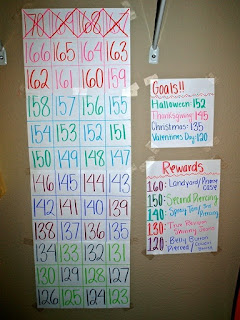 170 169 168 167
166 165 164 163
162 161 160 159
158 157 156 155
154 153 152 151
150 149 148 147
146 145 144 143
142 141 140 139
138 137 136 135
134 133 132 131
130 129 128 127
126 125 124 123
Goals!!
Halloween: 152
Thanksgiving: 145
Christmas: 135
Valentines Day: 120
Rewards
160: Landyard/Phone
case
150: Second Piercing
140: Spray Tan/ 3rd Piercing
130: True Religion
Skinny Jeans
120: Belly Button
Pierced/